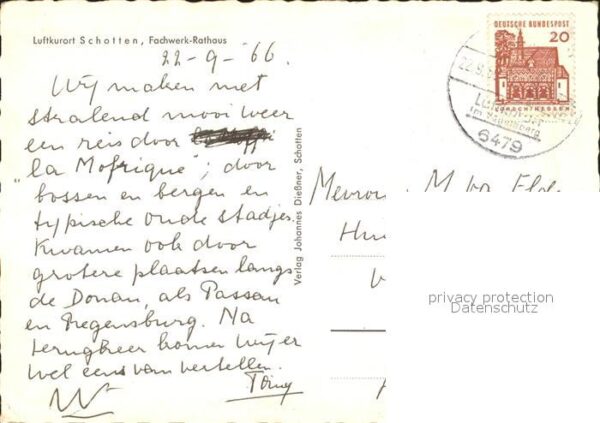 Luftkurort Schotten, Fachwerk-Rathaus
22-9-'66.
Wij maken met
stralend mooi weer
een reis door
"la Mofrique"; door
bossen en bergen en
typische oude stadjes.
Kwamen ook door
grotere plaatsen langs
de Donau, als Passau
en Regensburg. Na
terugkeer komen wij er
wel eens van vertellen.
Tony
Verlag Johannes Dießner, Schotten
DEUTSCHE BUNDESPOST
20
LORSCH/HESSEN
6479
Mevrouw M
privacy protection
Datenschutz